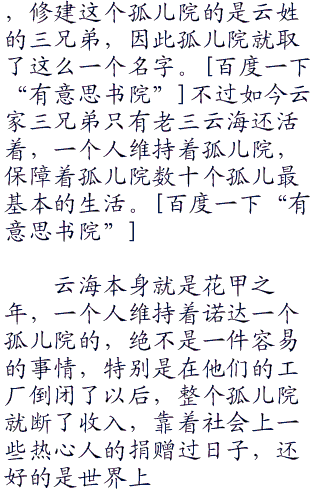 ，修建这个孤儿院的是云姓
的三兄弟，因此孤儿院就取
了这么一个名字。[百度一下
“有意思书院”]不过如今云
家三兄弟只有老三云海还活
着，一个人维持着孤儿院，
保障着孤儿院数十个孤儿最
基本的生活。[百度一下“有
意思书院”]
云海本身就是花甲之
年，一个人维持着诺达一个
孤儿院的，绝不是一件容易
的事情，特别是在他们的工
厂倒闭了以后，整个孤儿院
就断了收入，靠着社会上一
些热心人的捐赠过日子，还
好的是世界上